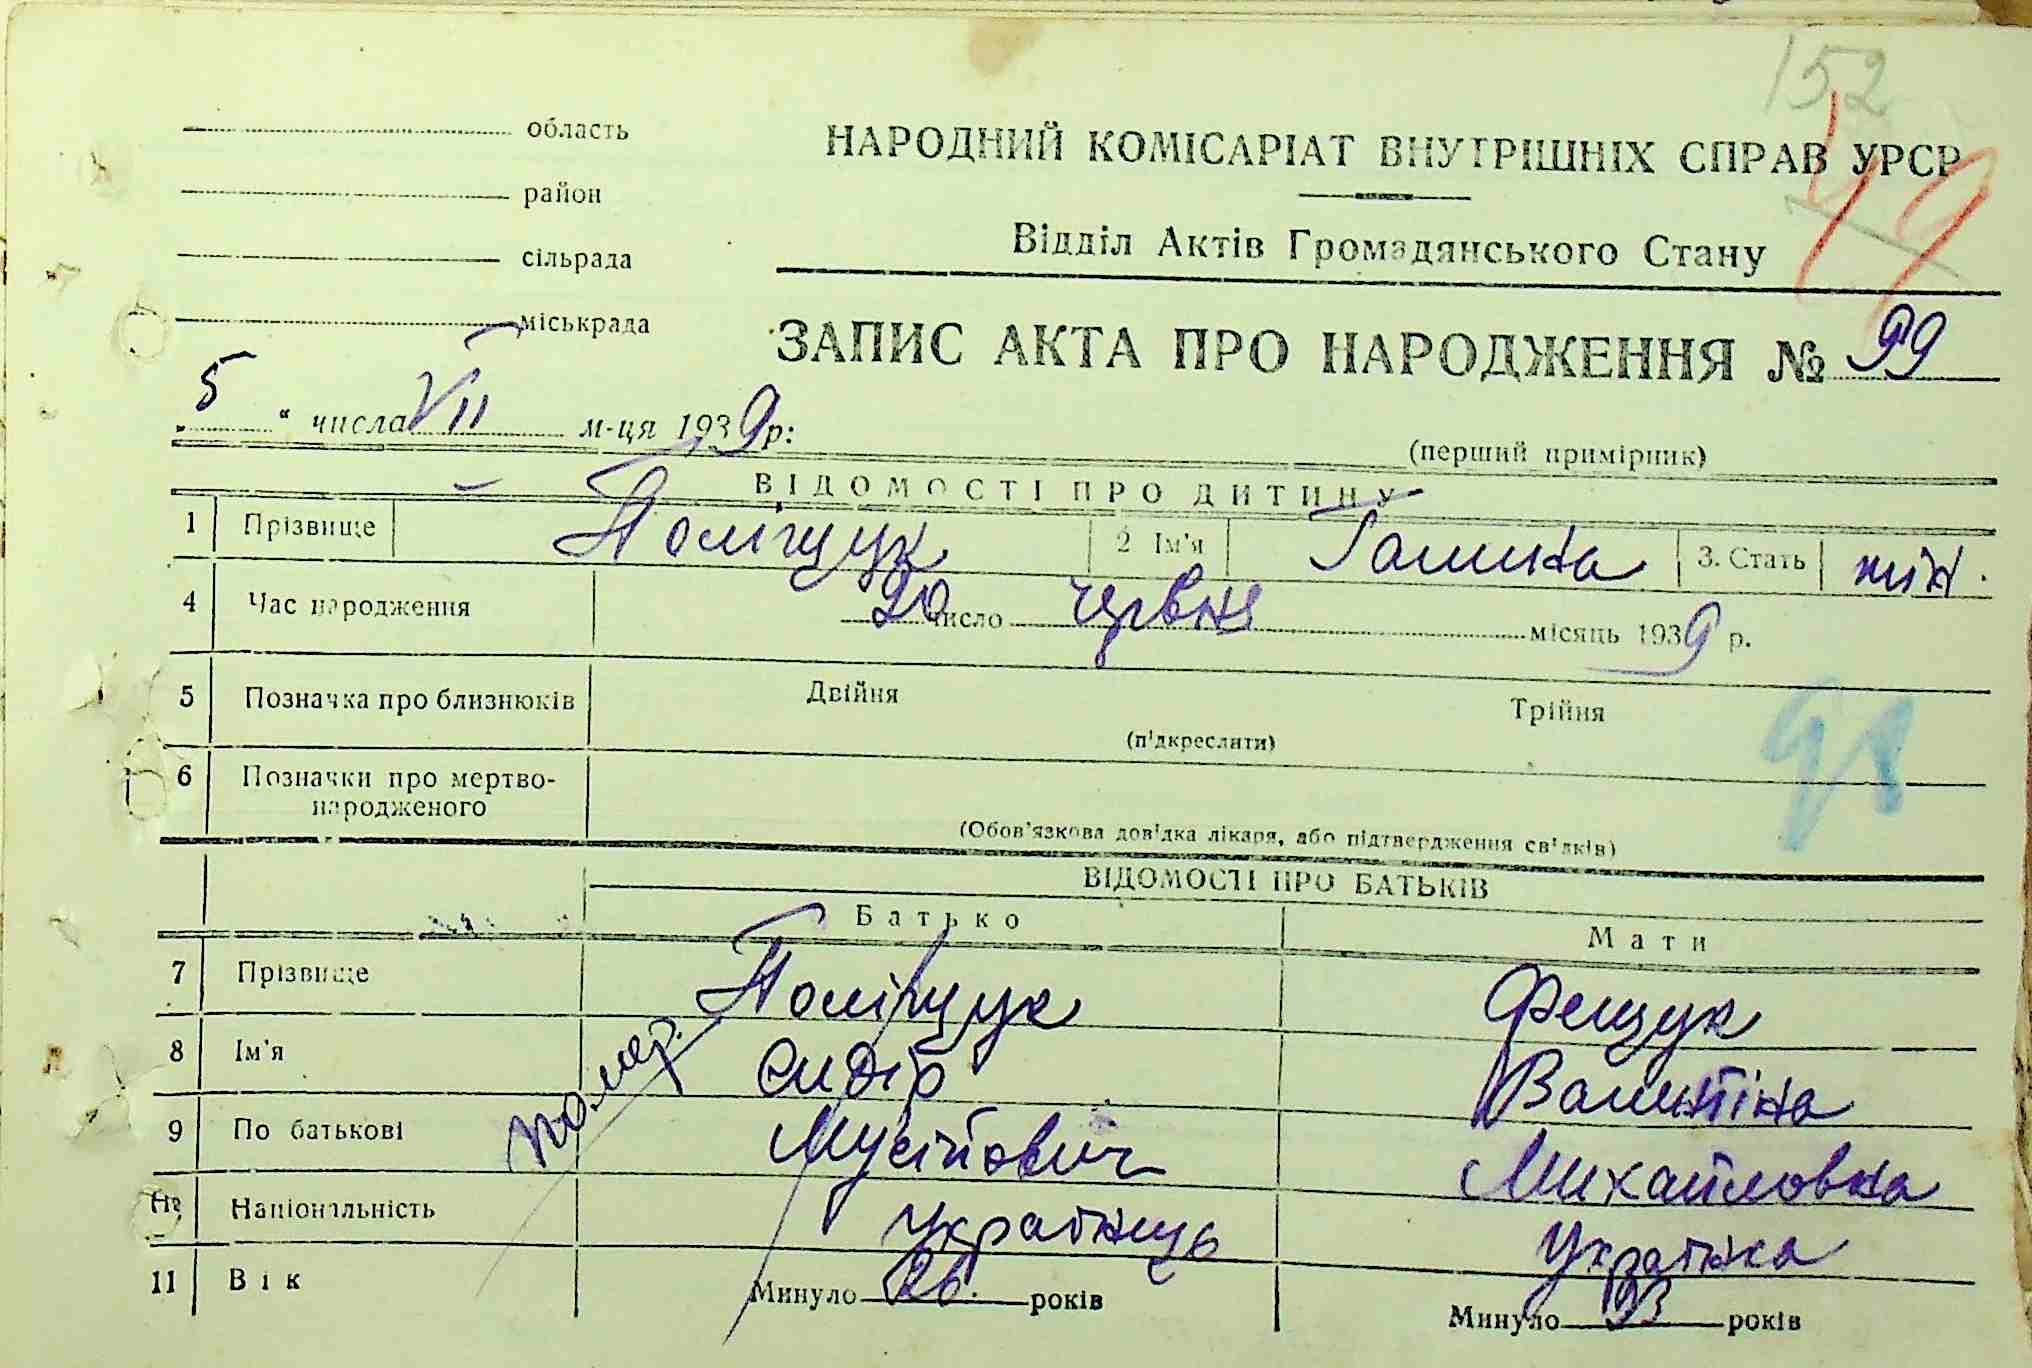 152
19
область
район
сільрада
міськрада
НАРОДНИЙ КОМІСАРІАТ ВНУТРІШНІХ СПРАВ УРСР
Відділ Актів Громадянського Стану
ЗАПИС АКТА ПРО НАРОДЖЕННЯ № 99
„ 5 “ числа VII м-ця 1939 р:
(перший примірник)
ВІДОМОСТІ ПРО ДИТИНУ
1 Прізвище Поліщук 2 Ім'я Галина 3. Стать жін.
4 Час народження 20 число червня місяць 1939 р.
5 Позначка про близнюків Двійня Трійня
(підкреслити)
6 Позначки про мертво-
народженого
(Обов'язкова довідка лікаря, або підтвердження свідків)
ВІДОМОСТІ ПРО БАТЬКІВ
Батько Мати
7 Прізвище Поліщук Фещук
8 Ім'я Сидір Валентіна
9 По батькові Мусійович Михайловна
помер.
Національність українець Українка
11 Вік Минуло 26. років Минуло 23 років